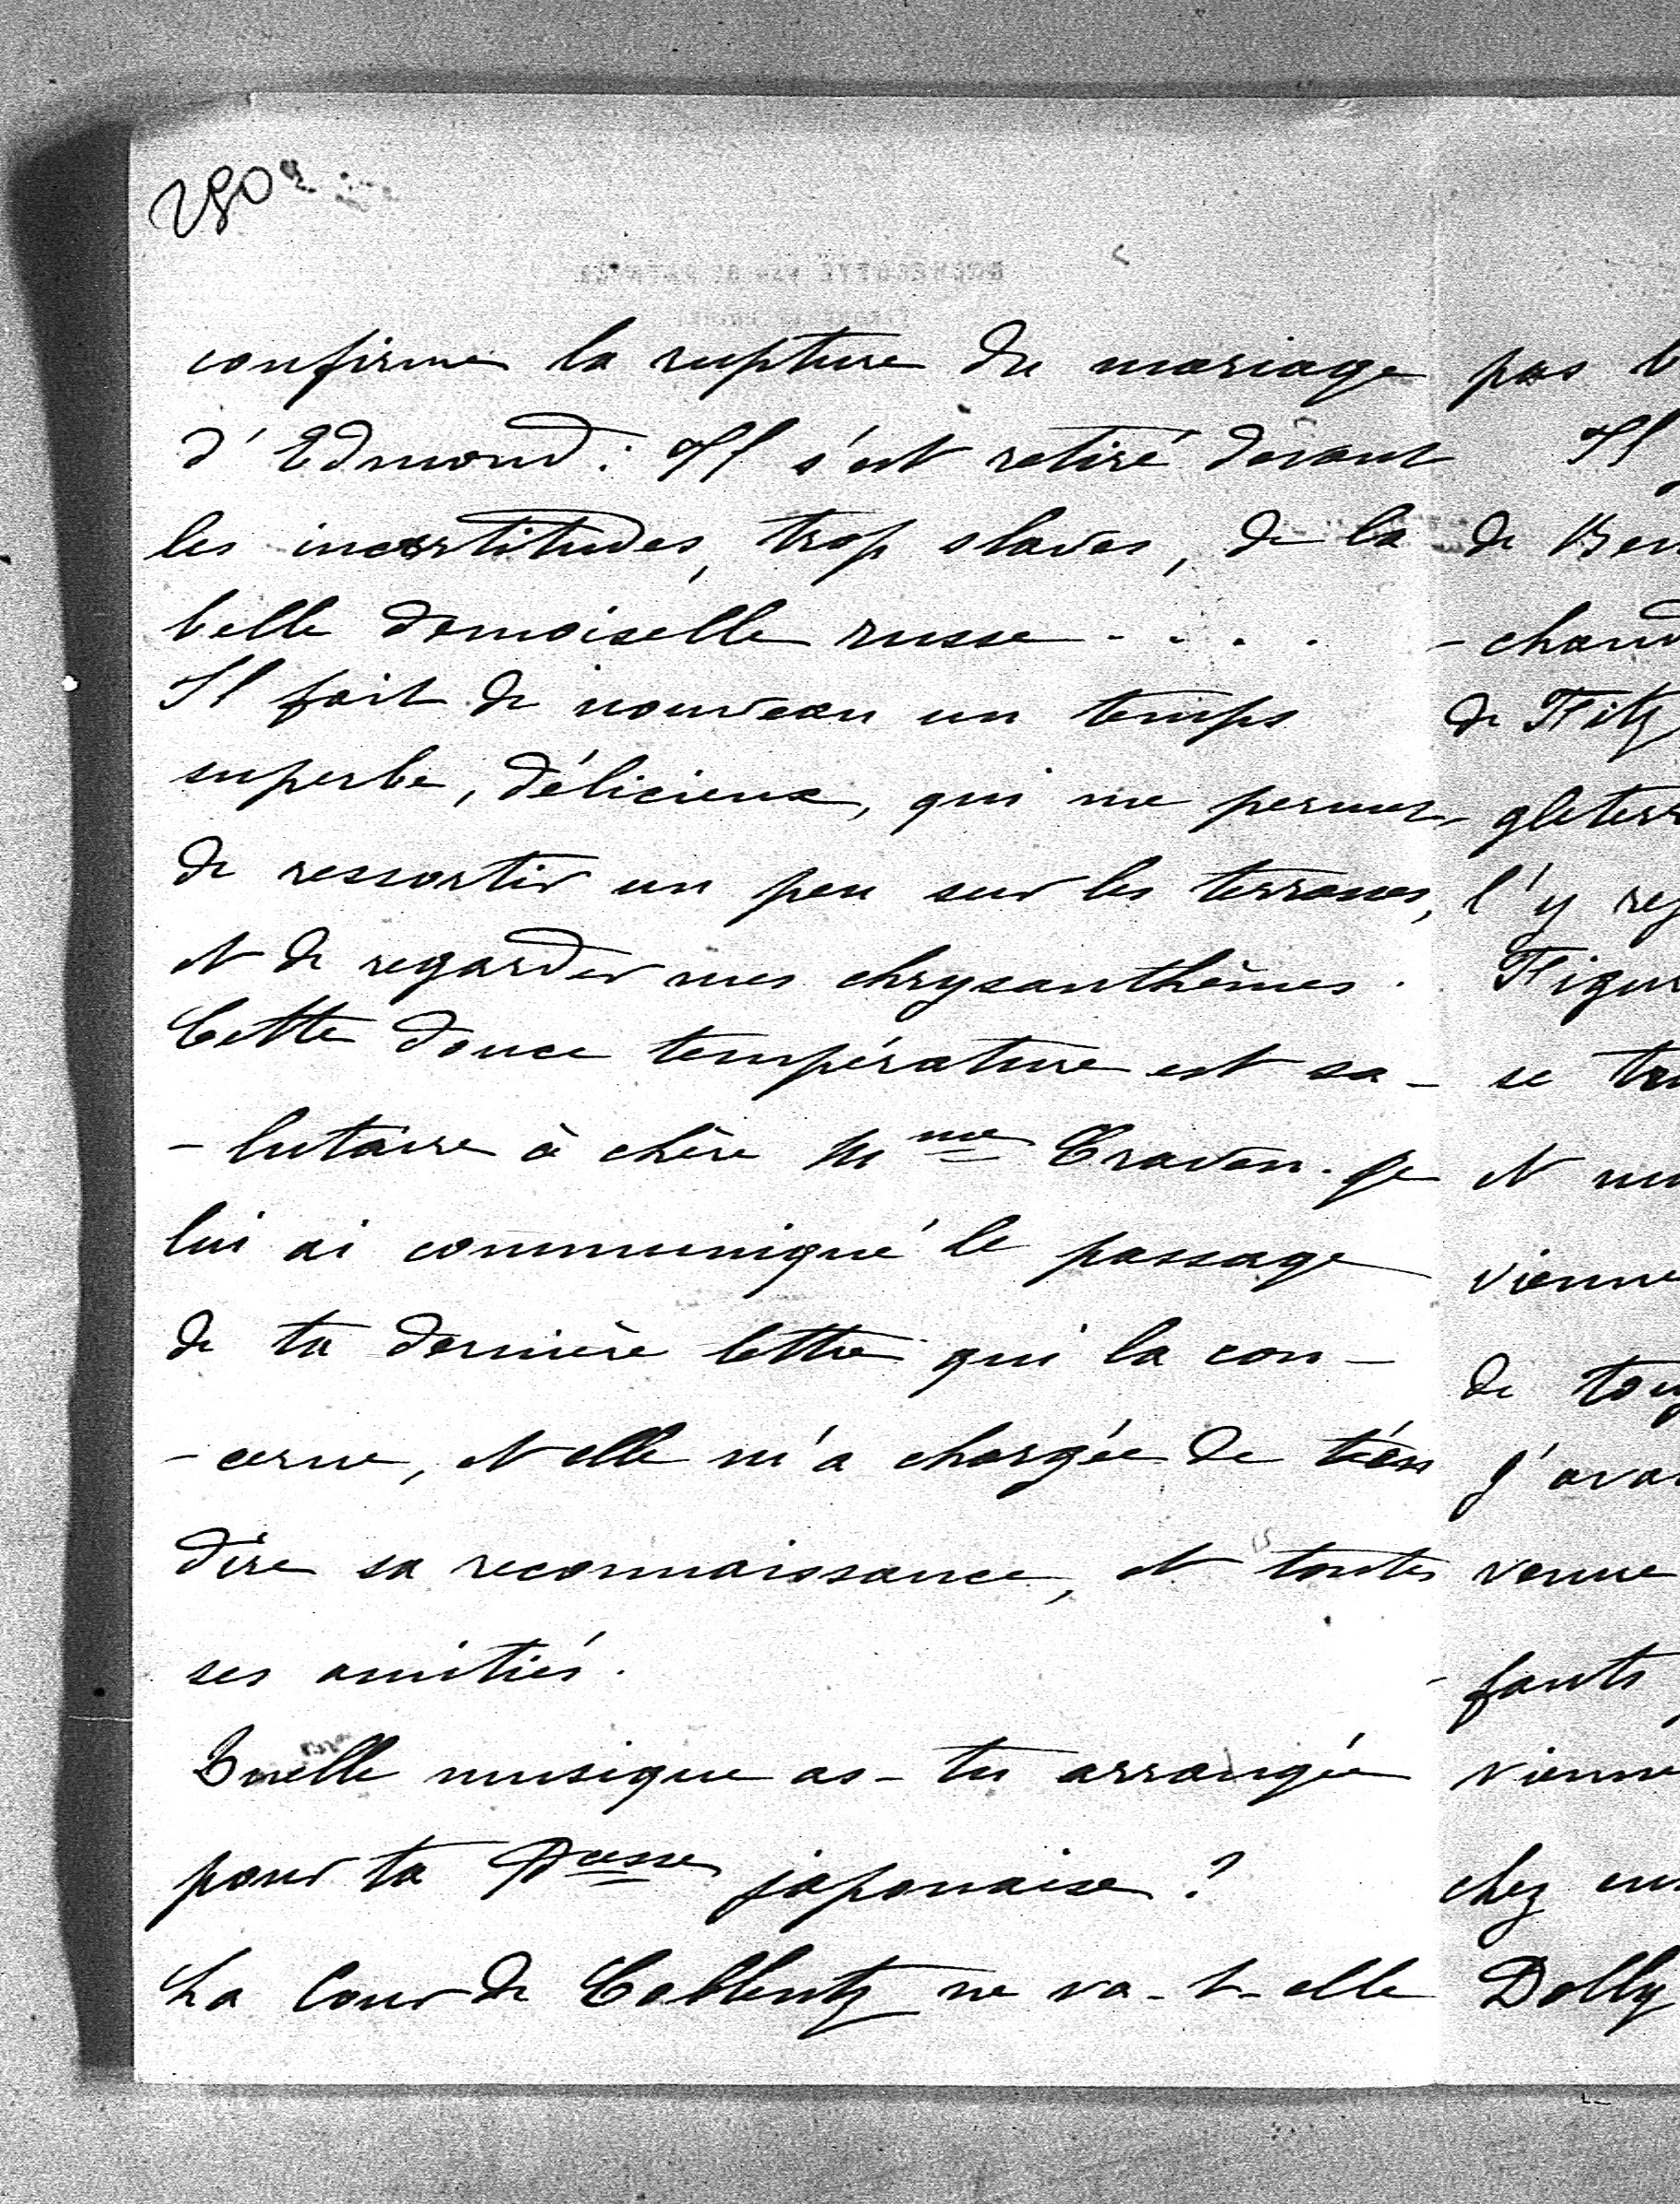 280
confirme la rupture du mariage
d'Edmond : Il s'est retiré devant
les incertitudes, trop slaves, de la
belle demoiselle russe . . . .
Il fait de nouveau un temps
superbe, délicieux, qui me permet
de ressortir un peu sur les terrasses,
et de regarder mes chrysanthèmes.
Cette douce température est sa-
-lutaire à chère Mme Craven. Je
lui ai communiqué le passage
de ta dernière lettre qui la con-
-cerne, et elle m'a chargée de t'en
dire sa reconnaissance, et toutes
ses amitiés.
Quelle musique as-tu arrangée
pour ta Pcesse japonaise ?
La Cour de Coblentz ne va-t-elle
pas
Il
de
-chand
de Fitz
gleterr
l'y
Figur
se
et
vienne
de
J'avai
venue
-fants
vienne
chez
Dolly